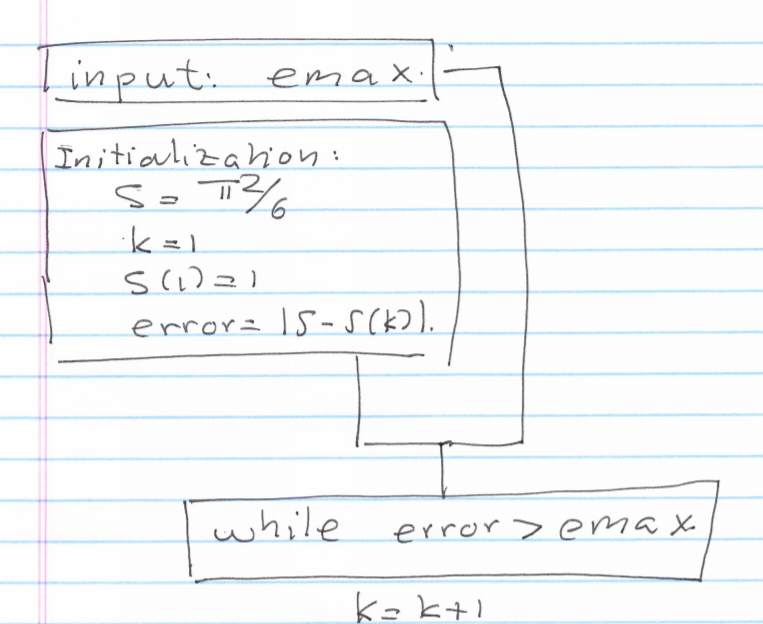 input: emax.
Initialization:
S = π²/6
k = 1
S(1) = 1
error = |S - S(k)|.
while error > emax
k = k+1